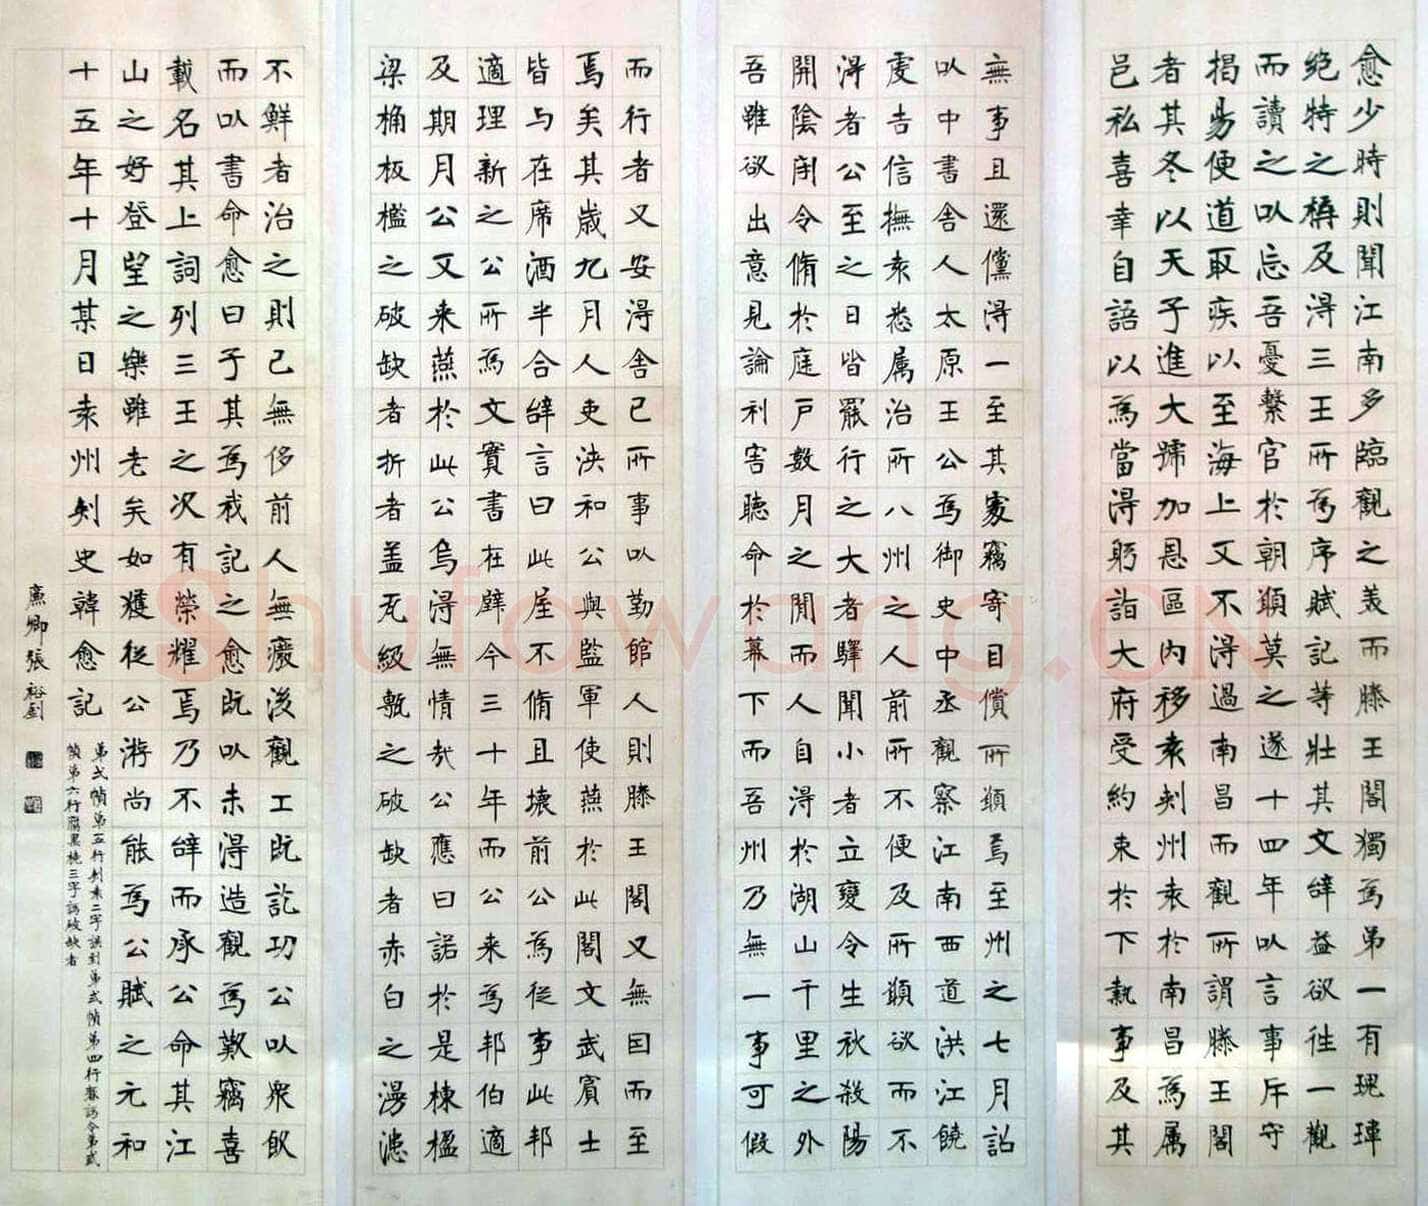 愈少時則聞江南多臨觀之美而滕王閣獨為弟一有瑰瑋
絕特之稱及得三王所為序賦記等壯其文辭益欲往一觀
而讀之以忘吾憂繫官於朝願莫之遂十四年以言事斥守
揭昜便道取疾以至海上又不得過南昌而觀所謂滕王閣
者其冬以天子進大號加恩區內移袁刺州袁於南昌為属
邑私喜幸自語以為當得躬詣大府受約束於下執事及其
無事且還儻得一至其處竊寄目償所願焉至州之七月詔
以中書舍人太原王公為御史中丞觀察江南西道洪江饒
虔吉信撫袁悉属治所八州之人前所不便及所願欲而不
得者公至之日皆罷行之大者驛聞小者立變令生秋殺陽
開陰閉令脩於庭戶數月之閒而人自得於湖山千里之外
吾雖欲出意見論利害聽命於幕下而吾州乃無一事可假
而行者又安得舍己所事以勤館人則滕王閣又無因而至
焉矣其歲九月人吏浹和公與監軍使燕於此閣文武賓士
皆与在席酒半合辭言曰此屋不脩且壞前公為從事此邦
適理新之公所為文實書在壁今三十年而公来為邦伯適
及期月公又来燕於此公烏得無情哉公應曰諾於是棟楹
梁桷板檻之破缺者折者盖瓦級甎之破缺者赤白之漫漶
不鮮者治之則已無侈前人無廢後觀工既訖功公以衆飲
而以書命愈曰子其為我記之愈既以未得造觀為歎竊喜
載名其上詞列三王之次有榮耀焉乃不辭而承公命其江
山之好登望之樂雖老矣如獲從公游尚能為公賦之元和
十五年十月某日袁州刺史韓愈記
弟弍幀弟五行刺袁二字誤到弟弍幀弟四行春譌令弟弍
幀弟六行腐黑撓三字譌破缺者
廉卿張裕釗
Shufawang.CN